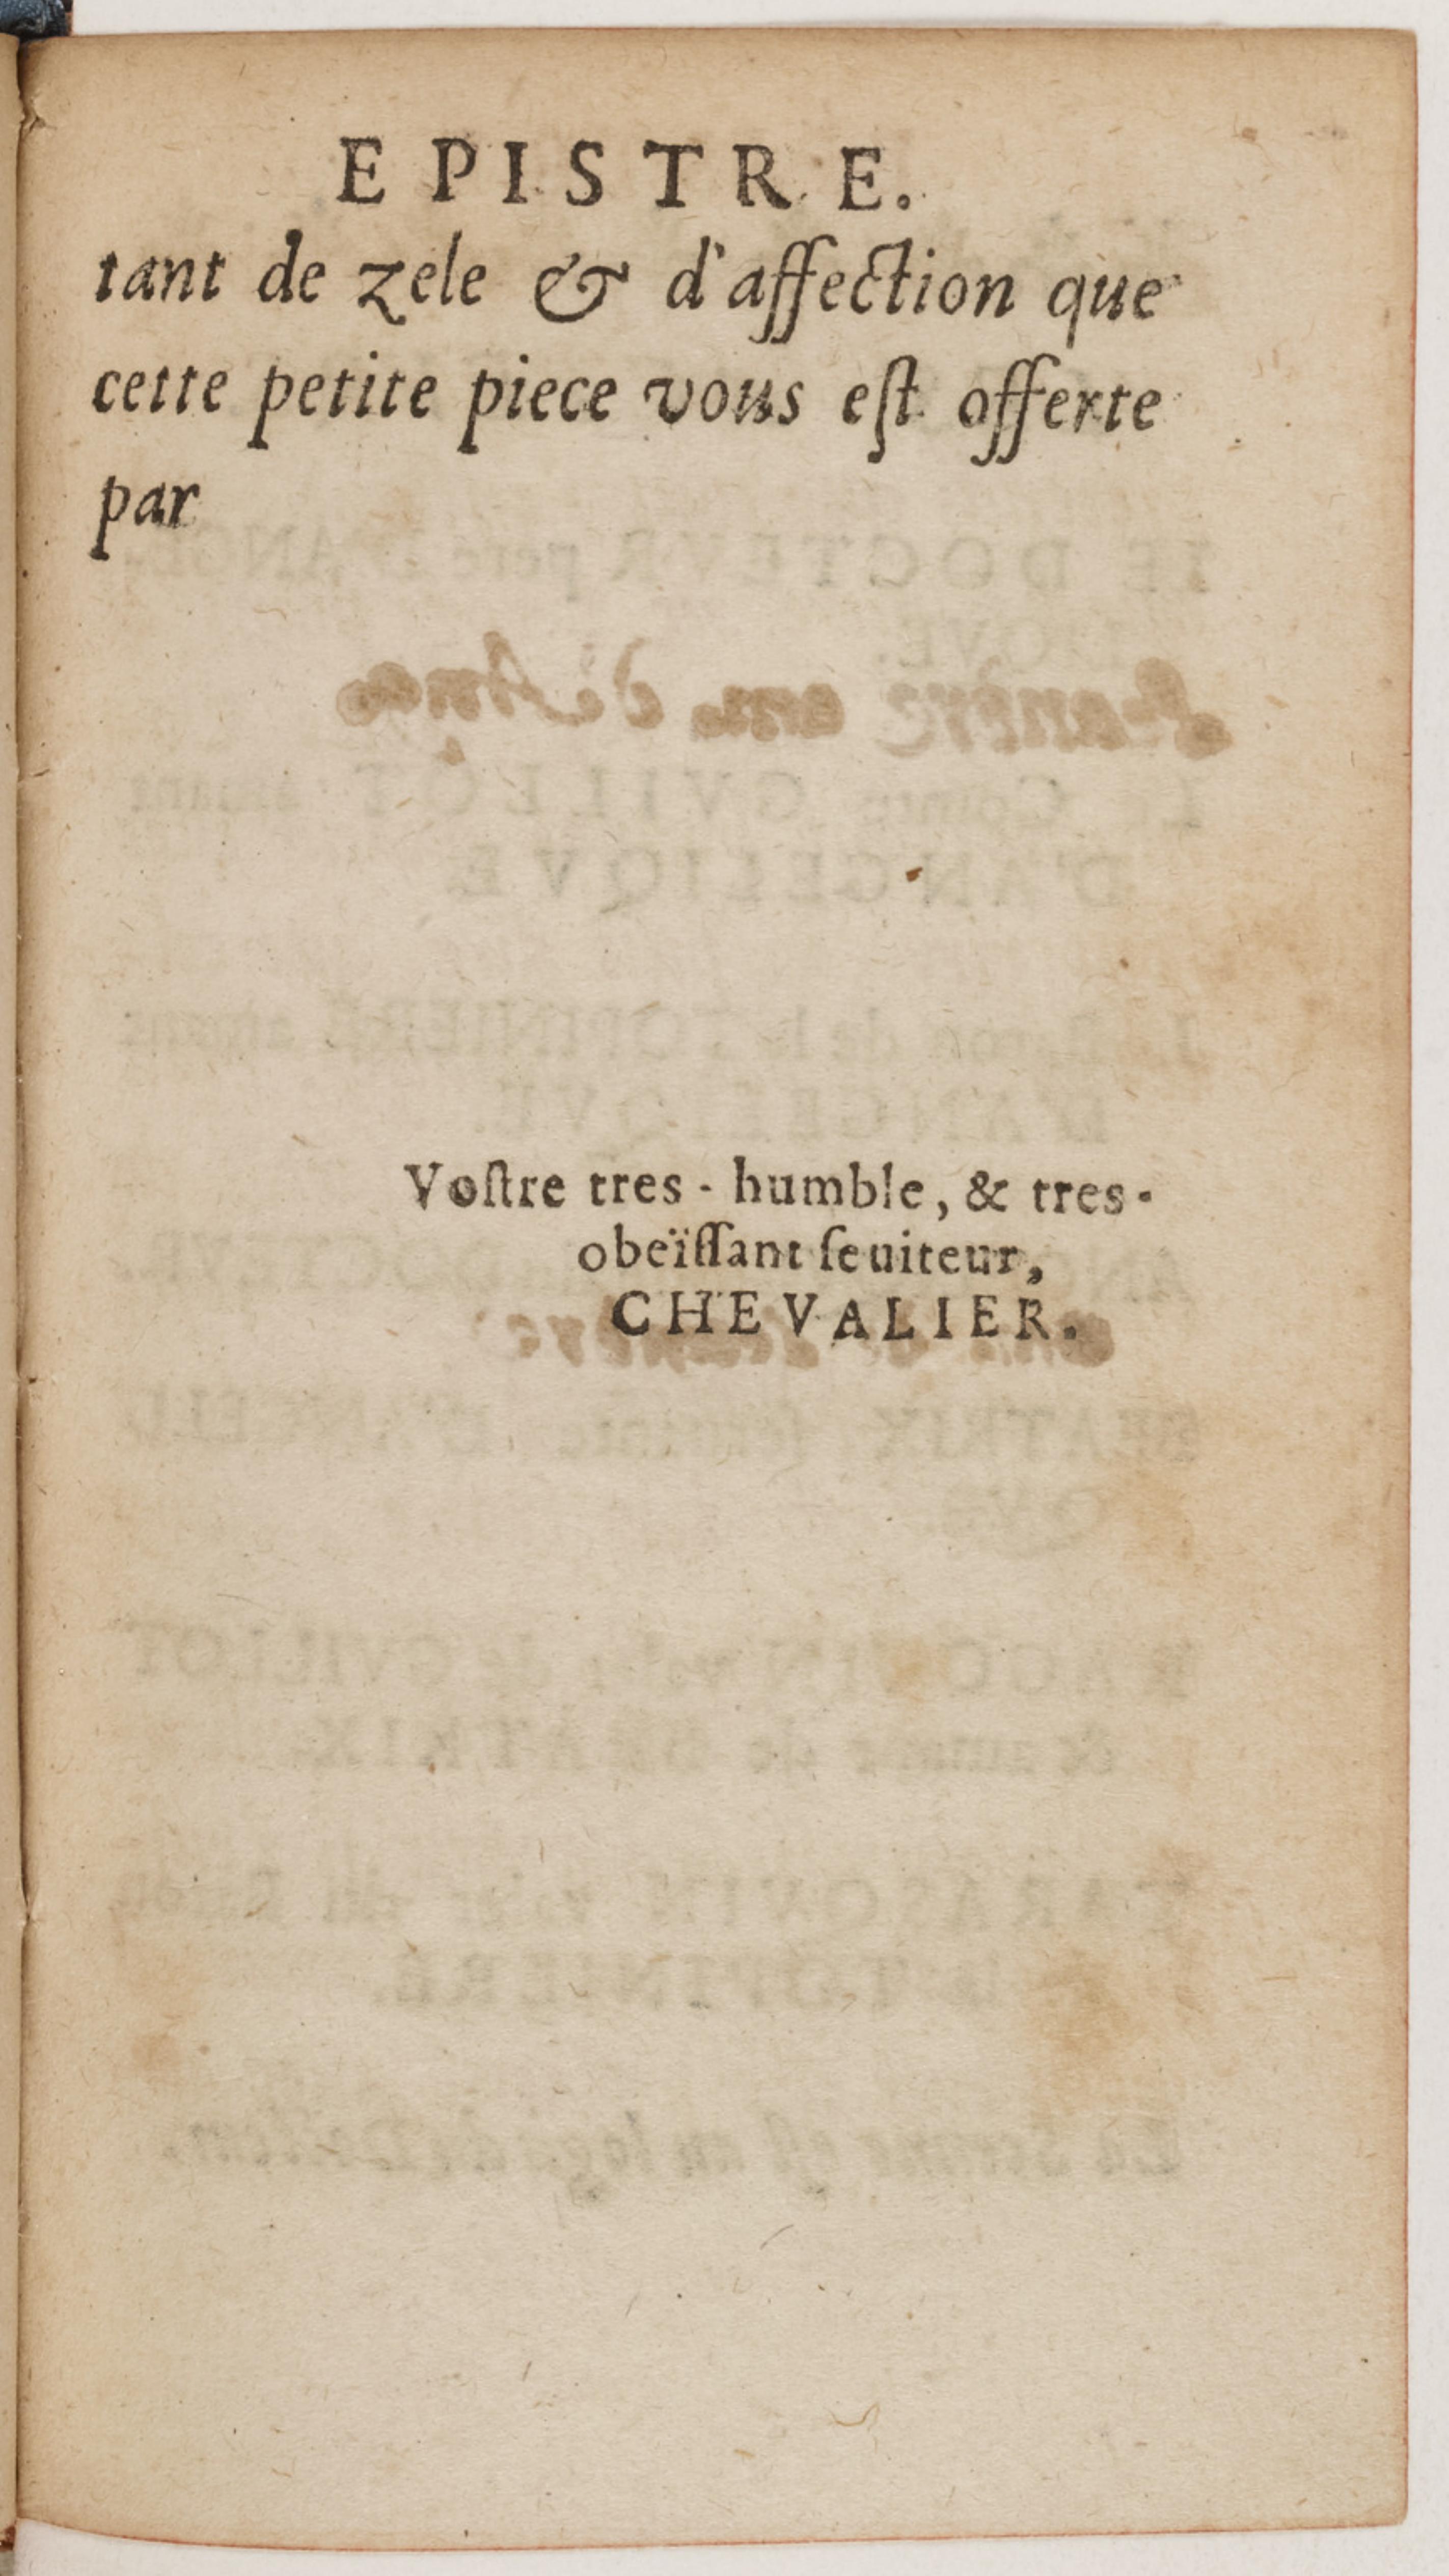 EPISTRE.
tant de zele & d'affection que
cette petite piece vous eſt offerte
par
Voſtre tres-humble, & tres-
obeïſſant ſeuiteur,
CHEVALIER.